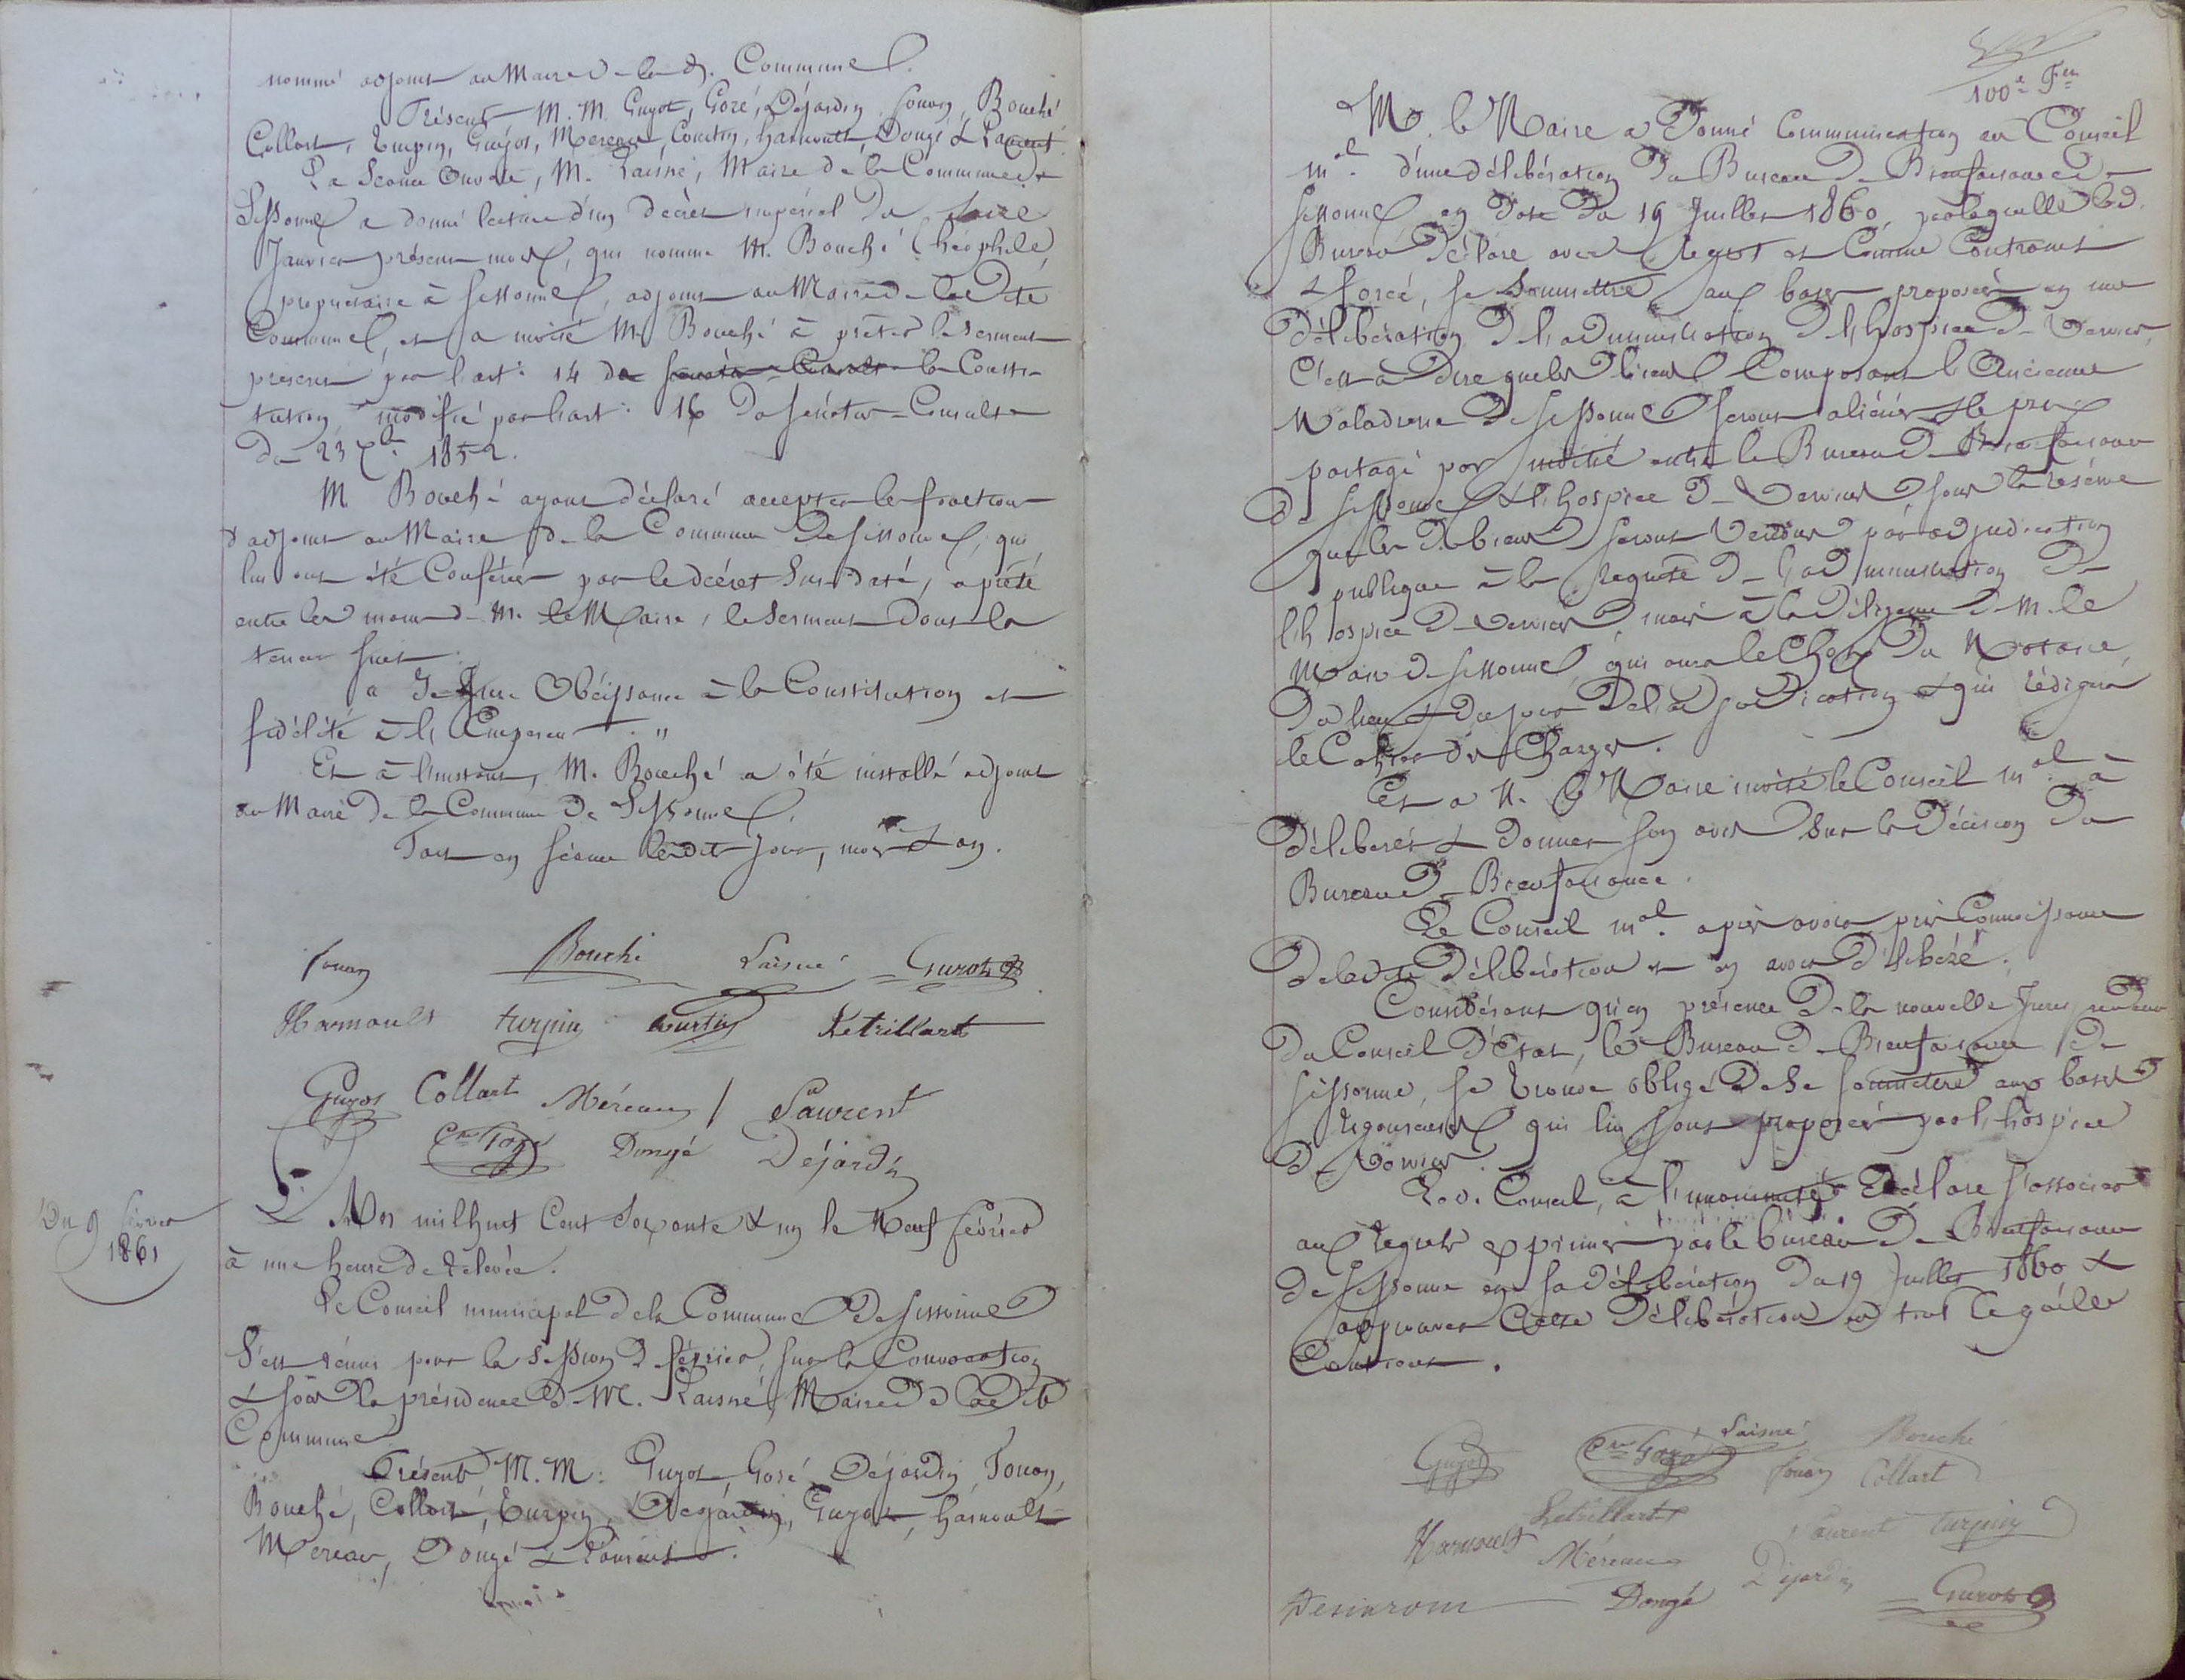 nommé adjoint au Maire de lad. Commune.
Présents M. M. Guyot, Goré, Déjardin, Jouon, Bouché
Collart, Turpin, Guyot, Mereau, Courtin, Harnoult, Dongé & Laurent.
La Séance Ouverte, M. Laisné, Maire de la Commune de
Sissonne a donné lecture d'un décret impérial du seize
Janvier présent mois, qui nomme M. Bouché Théophile,
propriétaire à Sissonne, adjoint au Maire de ladite
Commune, et a invité M. Bouché à prêter le serment
prescrit par l'art. 14 de la Consti-
tution modifié par l'art. 16 du Sénatus-Consulte
du 23 Xbre 1852.
M. Bouché ayant déclaré accepter les fonctions
d'adjoint au Maire de la Commune de Sissonne, qui
lui ont été Conférées par le décret sus-daté, a prêté
entre les mains de M. le Maire, le serment dont la
teneur suit :
" Je Jure Obéissance à la Constitution et
fidélité à l'Empereur. "
Et à l'instant, M. Bouché a été installé adjoint
au Maire de la Commune de Sissonne.
Fait en séance lesdits jour, mois & an.
Jouon Bouché Laisné Guyot
Harnoult turpin Courtin Letrillart
Guyot Collart Méreau Laurent
Goré Dongé Déjardin
Du 9 février
1861
L'An mil huit Cent Soixante & un le Neuf février
à une heure de relevée.
Le Conseil municipal de la Commune de Sissonne
s'est réuni pour la session de février, sur la Convocation
& sous la présidence de M. Laisné, Maire de ladite
Commune
Présents M. M. Guyot, Goré, Déjardin, Jouon,
Bouché, Collart, Turpin, Guyot, harnoult
Mereau, Dongé & Laurent.
100e Fet
M. le Maire a Donné Communication au Conseil
mal. d'une délibération du Bureau de Bienfaisance de
Sissonne en date du 19 Juillet 1860, par laquelle led.
Bureau Déclare avec regret et Comme Contraint
& forcé, se Soumettre aux bases proposées en une
délibération de l'administration de l'hospice de Vervins,
C'est-à-dire que les biens Composant l'Ancienne
Maladrerie de Sissonne seront aliénés & le prix
partagé par moitié entre le Bureau de Bienfaisance
de Sissonne & l'hospice de Vervins, sous la réserve
que les d. biens seront Vendus par adjudication
publique à la requête de l'administration de
l'hospice de Vervins, mais à la diligence de M. le
Maire de Sissonne, qui aura le Choix du Notaire,
du lieu & du jour de l'adjudication & qui rédigera
le Cahier des Charges.
Et a M. le Maire invité le Conseil mal. à
délibérer & Donner son avis sur la Décision du
Bureau de Bienfaisance.
Le Conseil mal. après avoir pris Connaissance
de ladite Délibération et en avoir Délibéré.
Considérant qu'en présence de la nouvelle Jurisprudence
du Conseil d'Etat, le Bureau de Bienfaisance de
Sissonne, se trouve obligé de se soumettre aux bases
rigoureuses qui lui sont proposées par l'hospice
de Vervins.
Led. Conseil, à l'unanimité Déclare s'associer
aux regrets exprimés par le bureau de Bienfaisance
de Sissonne en sa délibération du 19 Juillet 1860 &
approuver Cette Délibération en tout ce qu'elle
Contient.
Guyot Goré Laisné Bouché
Jouon Collart
Letrillart Laurent turpin
Harnoult Méreau Déjardin
Dongé Guyot